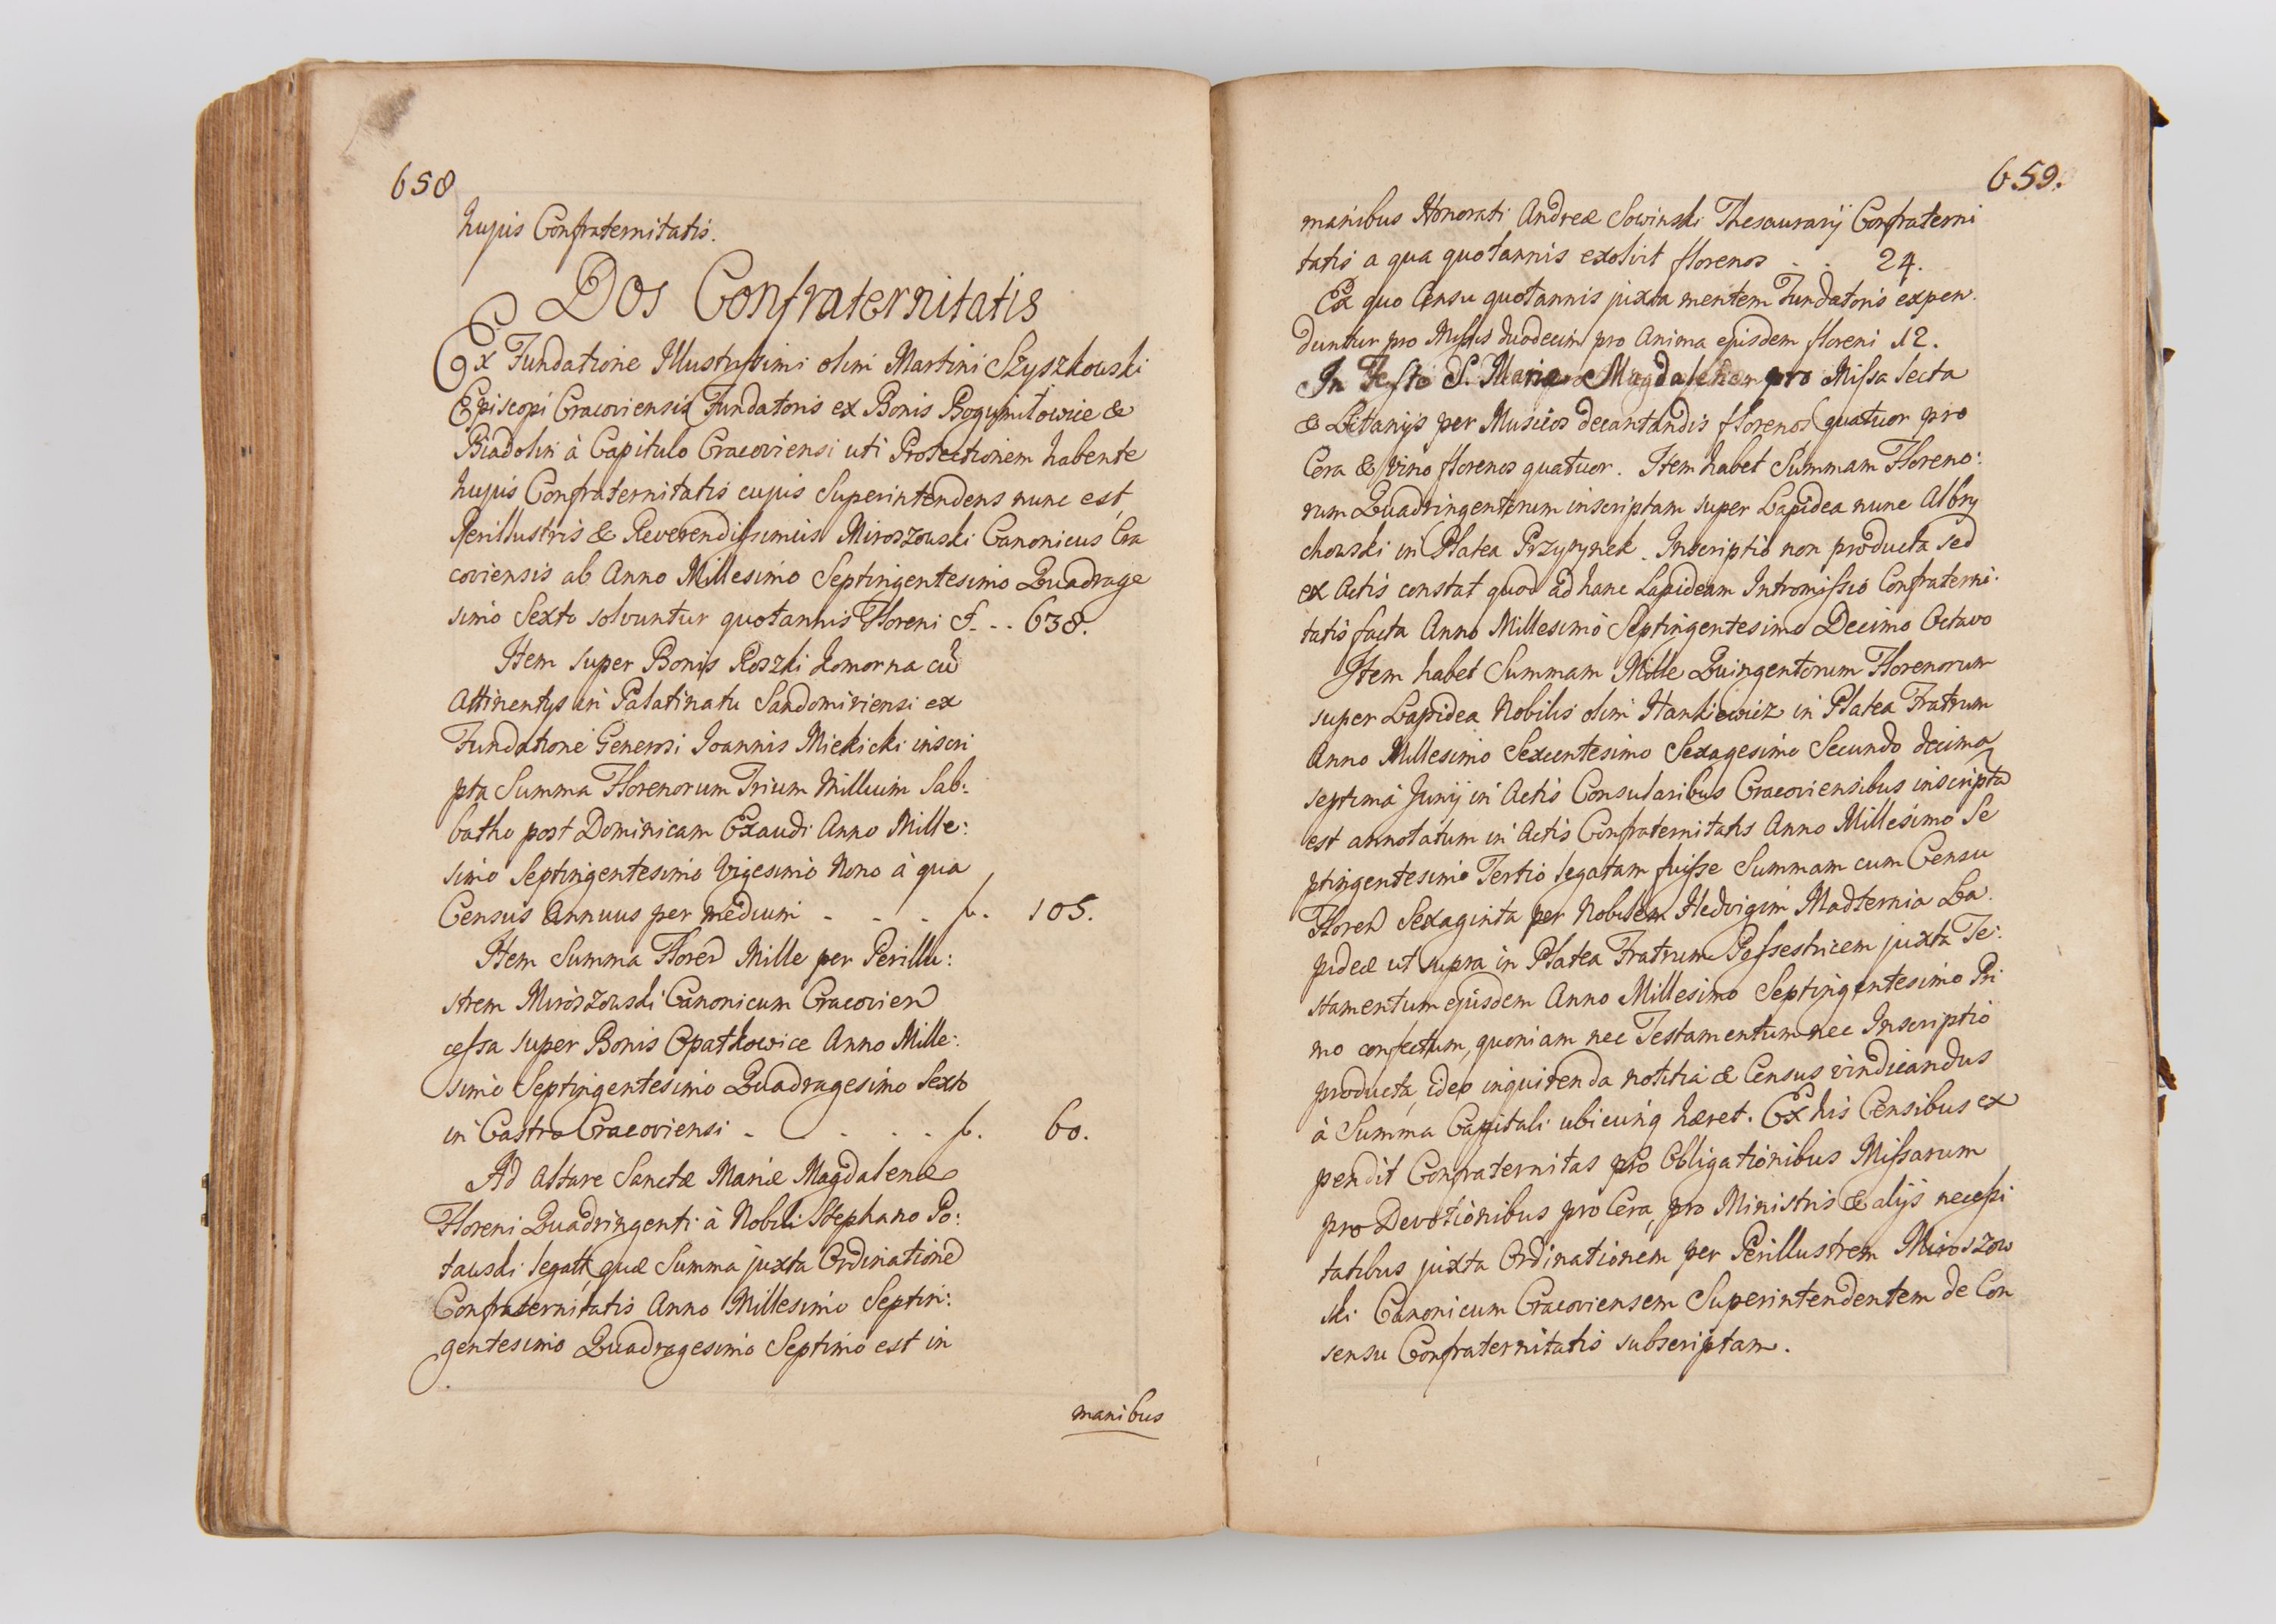 658
hujus Confraternitatis.
Dos Confraternitatis
Ex Fundatione Illustrissimi olim Martini Szyszkowski
Episcopi Cracoviensis Fundatoris ex Bonis &
Biadolin à Capitulo Cracoviensi uti Protectionem habente
hujus Confraternitatis cujus Superintendens nunc est
Perillustris & Reverendissimus Miroszowski Canonicus Cra
coviensis ab Anno Millesimo Septingentesimo Quadrage
simo Sexto solvuntur quotannis Floreni f. - - 638.
Item super Bonis Roszki Komorna cũ
Attinentijs in Palatinatu Sandomiriensi ex
Fundatione Generosi Joannis Miekicki inscri
pta Summa Florenorum Trium Millium Sab:
batho post Dominicam Exaudi Anno Mille:
simo Septingentesimo Vigesimo Nono à qua
Census Annuus per medium - - - f. 105.
Item Summa Floren Mille per Perillu:
strem Miroszowski Canonicum Cracovien
cessa super Bonis Opatkowice Anno Mille:
simo Septingentesimo Quadragesimo Sexto
in Castro Cracoviensi - - - - - f. 60.
Ad Altare Sanctæ Mariæ Magdalenæ
Floreni Quadringenti à Nobili Stephano Po:
tauski legati, quæ Summa juxta Ordinatione
Confraternitatis Anno Millesimo Septin:
gentesimo Quadragesimo Septimo est in
manibus
659.
manibus Honorati Andreæ Sowinski Thesaurarij Confraterni
tatis a qua quotannis exolvit florenos - - 24.
Ex quo Censu quotannis juxta mentem Fundatoris expen.
duntur pro Missis duodecim pro Anima ejusdem floreni 12.
In Festo S. Mariæ Magdalenæ pro Missa lecta
& Litanijs per Musicos decantandis florenos quatuor pro
Cera & Vino florenos quatuor. Item habet Summam Floreno:
rum Quadringentorum inscriptam super Lapidea nunc Albry
chowski in Platea Przyrynek. Inscriptio non producta sed
ex Actis constat quod ad hanc Lapideam Intromissio Confraterni.
tatis facta Anno Millesimo Septingentesimo Decimo Octavo
Item habet Summam Mille Quingentorum Florenorum
super Lapidea Nobilis olim Hankiewicz in Platea Fratrum
Anno Millesimo Sexcentesimo Sexagesimo Secundo decima
septima Junij in Actis Consularibus Cracoviensibus inscripta
est annotatum in Actis Confraternitatis Anno Millesimo Se
ptingentesimo Tertio legatam fuisse Summam cum Censu
Floren Sexaginta per Nobilem Hedvigim Madternia La.
pideæ ut supra in Platea Fratrum Possestricem juxta Te:
stamentum ejusdem Anno Millesimo Septingentesimo Pri
mo confectum, quoniam nec Testamentum nec Inscriptio
producta, ideo inquirenda notitia & Census vindicandus
à Summa Capitali ubicunq hæret. Ex his Censibus ex
pendit Confraternitas pro Obligationibus Missarum
pro Devotionibus pro Cera, pro Ministris & alijs necessi
tatibus juxta Ordinationem per Perillustrem Miroszow
ski Canonicum Cracoviensem Superintendentem de Con
sensu Confraternitatis subscriptam.